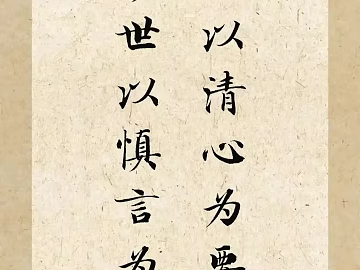 以清心为要
世以慎言为